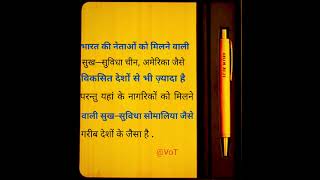 भारत की नेताओं को मिलने वाली
सुख–सुविधा चीन, अमेरिका जैसे
विकसित देशों से भी ज़्यादा है
परन्तु यहां के नागरिकों को मिलने
वाली सुख–सुविधा सोमालिया जैसे
गरीब देशों के जैसा है .
@VoT